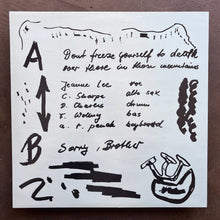 A
Dont freeze yourself to death
over there in those mountains
Jeanne Lee vox
C. Sharpe alto sax
D. Charles drum
F. Wollny bas
a. r. penck keyboard
B
Sorry Brother